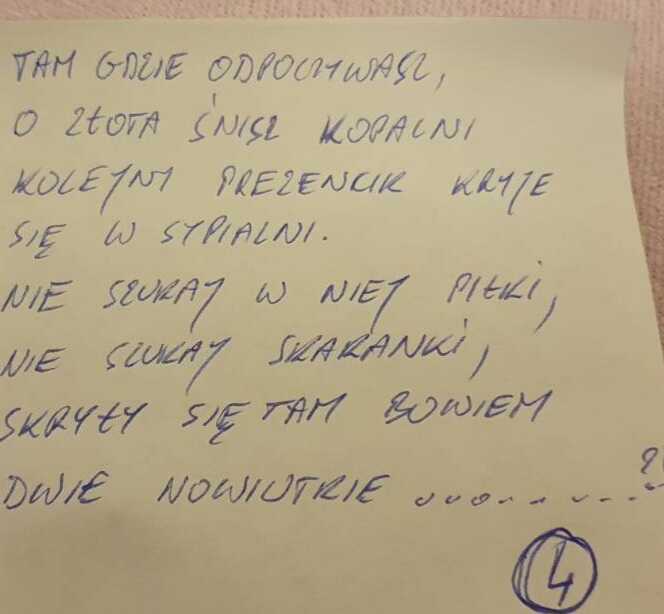 TAM GDZIE ODPOCZYWASZ,
O ZŁOTA ŚNISZ KOPALNI
KOLEJNY PREZENCIK KRYJE
SIĘ W SYPIALNI.
NIE SZUKAJ W NIEJ PIŁKI,
NIE SZUKAJ SKAKANKI,
SKRYŁY SIĘ TAM BOWIEM
DWIE NOWIUTKIE ..........?
4